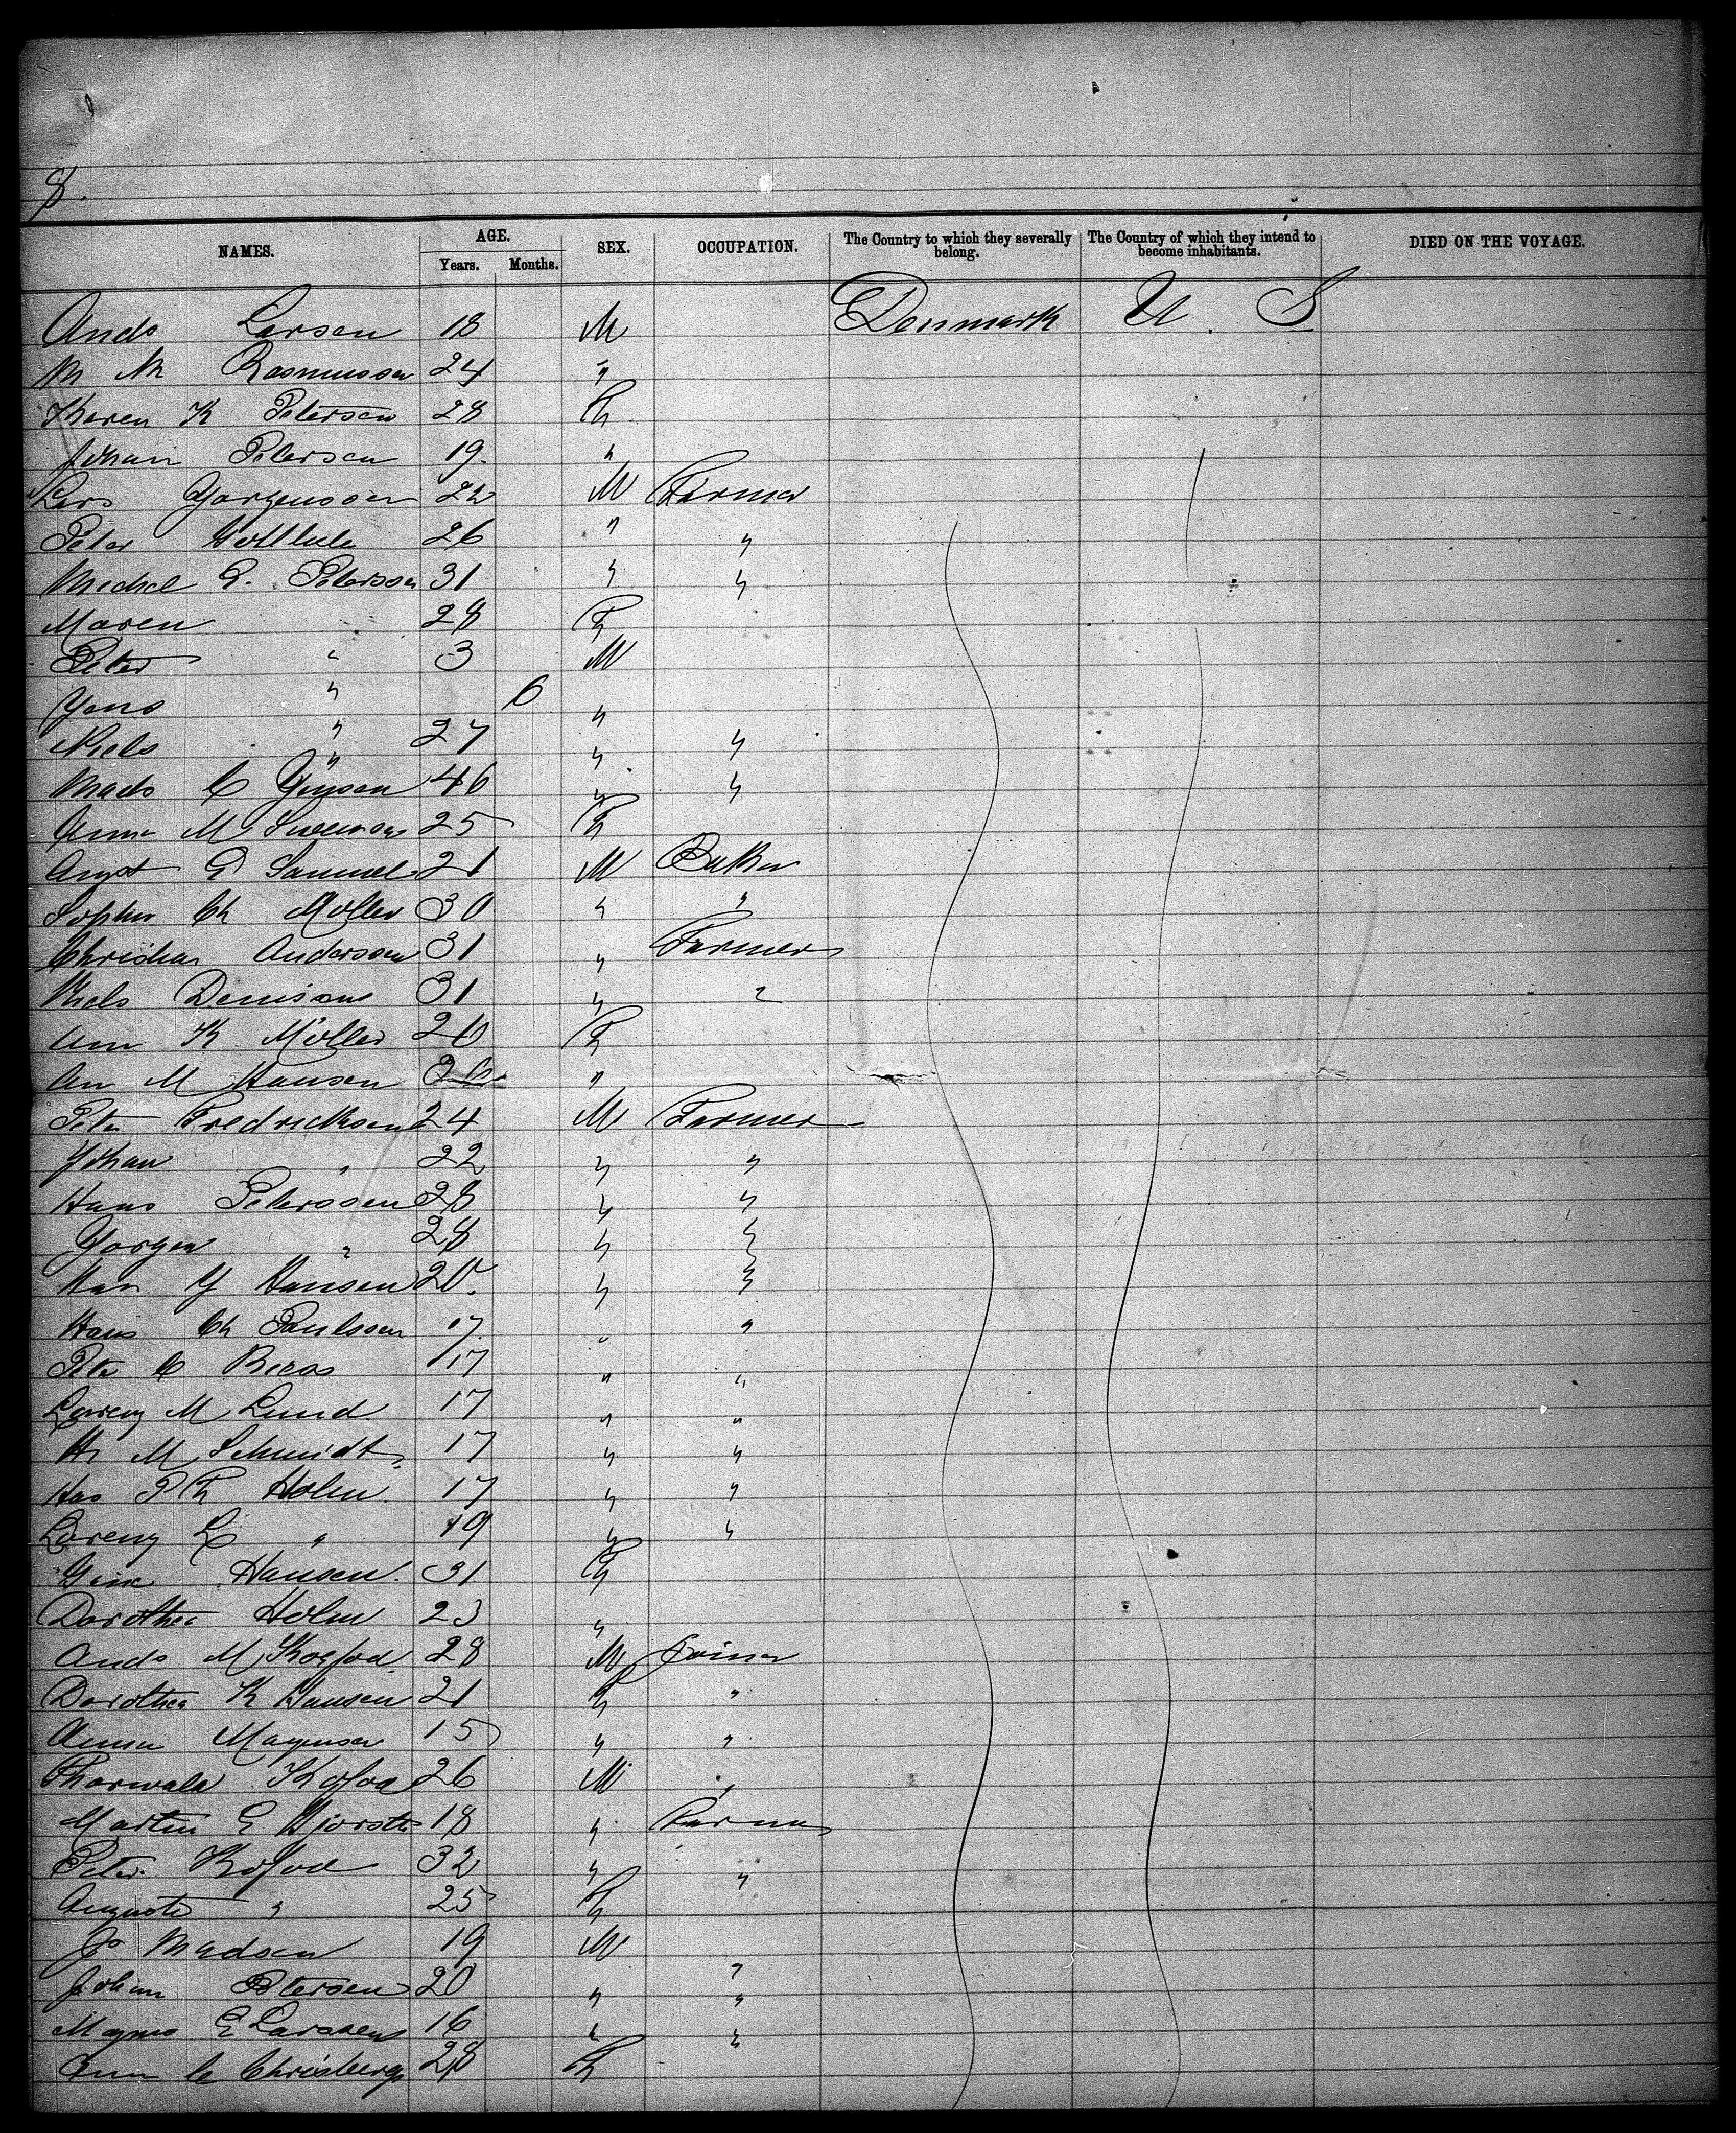 8.
NAMES. AGE. Years. Months. SEX. OCCUPATION. The Country to which they severally belong. The Country of which they intend to become inhabitants. DIED ON THE VOYAGE.
Ands Larsen 18 M Denmark U. S
M M Rasmussen 24 "
Karen K Petersen 28 F
Johan Petersen 19 "
Lars Yorgensson 22 M Farmer
Peter 26 " "
Michel G. Petersson 31 " "
Maren 28 F
Peter " 3 M
Yens " 6 "
Niels " 27 " "
Mads C Yensen 46 " "
Anna M 25 F
Augst G Samuel 21 M Baker
Sophus Ch Moller 30 " "
Christian Anderssen 31 " Farmer
Niels Denison 31 " "
Ann K Moller 20 F
An M Hansen "
Peter Fredricksen 24 M Farmer
Johan " 22 " "
Hans Peterssen 28 " "
Yorgen " 28 " "
Han Y Hansen 20 " "
Hans Ch Paulsson 17 " "
Pete C 17 " "
Lorenz M Lund 17 " "
H M Schmidt 17 " "
Has P Ch Holm 17 " "
Lorenz L " 19 " "
Hansen 31 F
Dorothea Holm 23 "
Ands M Kofod 28 M Joiner
Dorothea K Hansen 21 F "
Anna 15 " "
Thorwald Kofod 26 M "
Martin E 18 " Farmer
Peter Kofod 32 " "
Auguste " 25 F
Madsen 19 M
Johan Petersen 20 " "
Magnus E Larssen 16 " "
Ann C Chrisberg 28 F